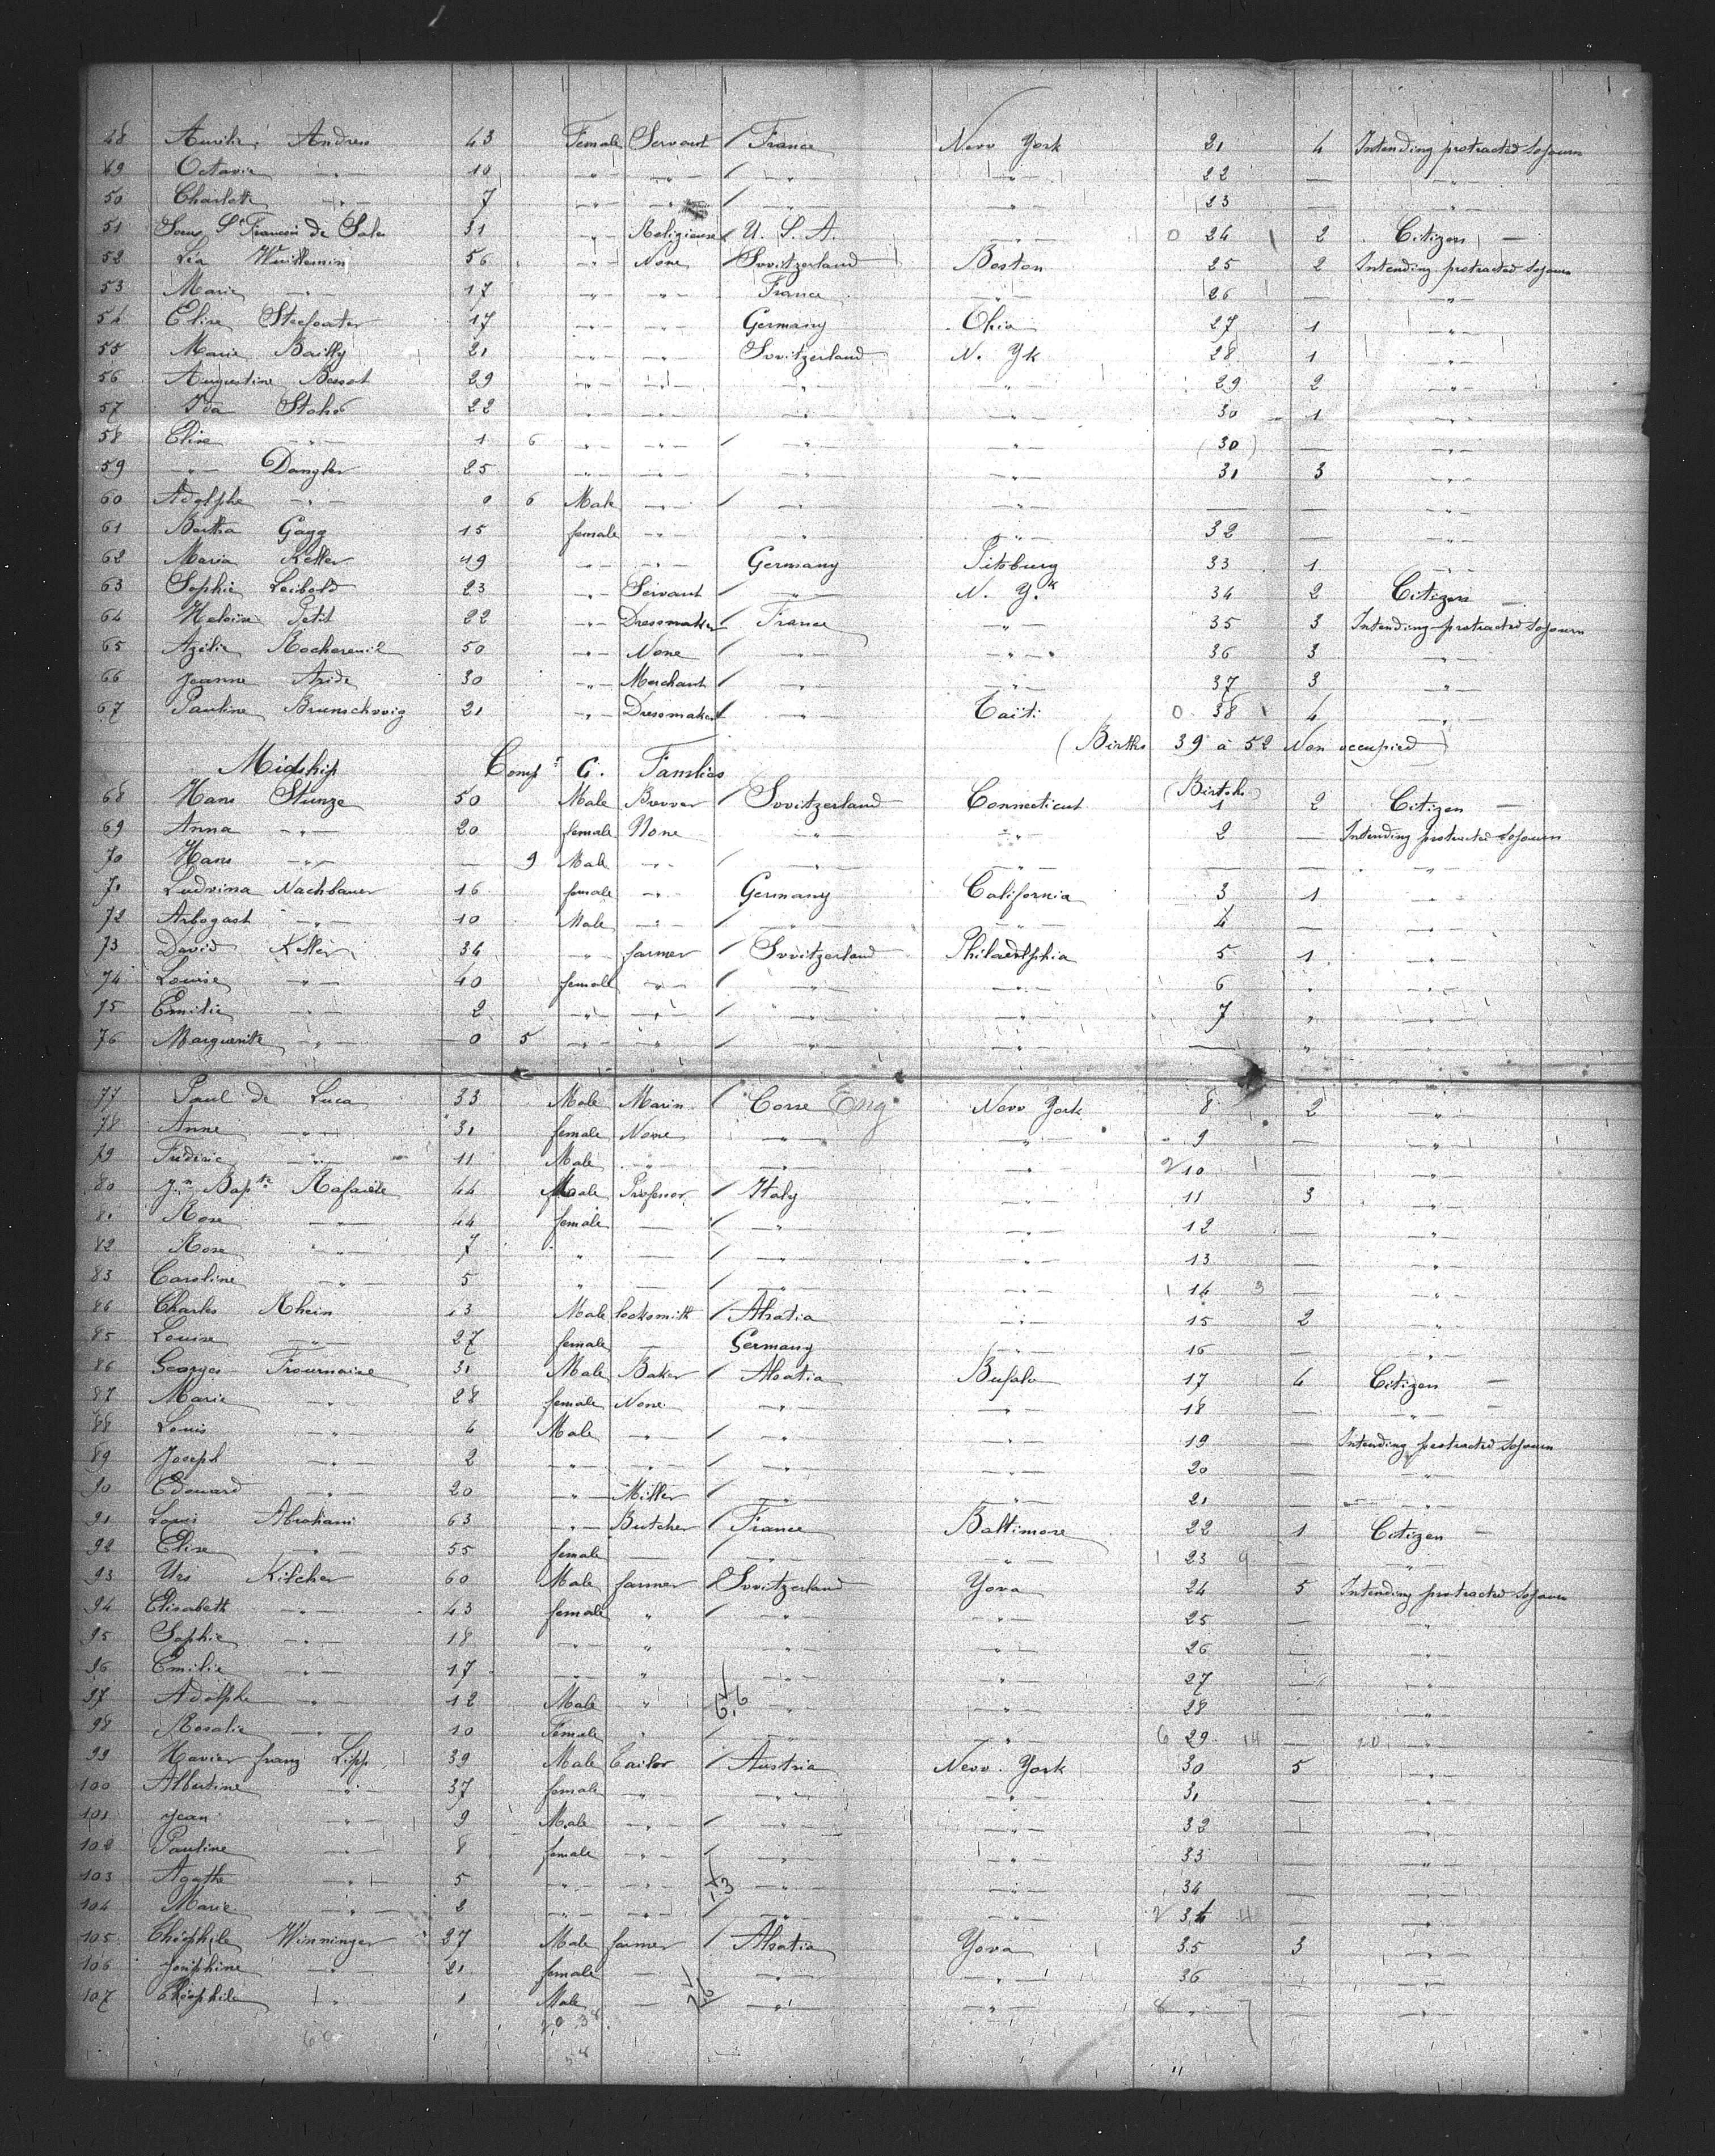 48 Aurélie Andrew 43 Female Servant / France New York 21 4 Intending protracted Sojourn
49 Octavie -"- 10 -"- -"- / -"- -"- 22 — -"-
50 Charlotte -"- 7 -"- -"- / -"- -"- 23 — -"-
51 Soeur St François de Sales 31 -"- Religieuse / U. S. A. -"- 0 24 2 Citizen —
52 Léa Wuillemin 56 -"- None / Switzerland Boston 25 2 Intending protracted Sojourn
53 Marie -"- 17 -"- -"- France -"- 26 — -"-
54 Elise 17 -"- -"- Germany Ohio 27 1 -"-
55 Marie Bailly 21 -"- -"- Switzerland N. Yk 28 1 -"-
56 Augustine 29 -"- -"- -"- -"- 29 2 -"-
57 Ida 22 -"- -"- -"- -"- 30 1 -"-
58 Elise -"- 1 6 -"- -"- / -"- -"- (30) — -"-
59 -"- Dangler 25 -"- -"- -"- -"- 31 3 -"-
60 Adolphe -"- 0 6 Male -"- / -"- -"- — — -"-
61 Bertha Gagg 15 female -"- -"- -"- 32 — -"-
62 Maria Keller 49 -"- -"- Germany Pitsburg 33 1 -"-
63 Sophie Leibold 23 -"- Servant -"- N. Yk 34 2 Citizen —
64 Heloïse Petit 22 -"- Dressmaker / France -"- 35 3 Intending protracted Sojourn
65 Azélie 50 -"- None / -"- -"- 36 3 -"-
66 Jeanne Aride 30 -"- Merchant / -"- -"- 37 3 -"-
67 Pauline Brunschwig 21 -"- Dressmaker / -"- Taïti 0 38 4 -"-
(Births 39 à 52 Non occupied)
Midship Compt C. Families
68 Hans Stunze 50 Male Brewer / Switzerland Connecticut (Births) 1 2 Citizen —
69 Anna -"- 20 female None -"- -"- 2 — Intending protracted Sojourn
70 Hans -"- — 9 Male -"- / -"- -"- — — -"-
71 Ludwina Nachbauer 16 female -"- Germany California 3 1 -"-
72 Arbogast -"- 10 Male -"- / -"- -"- 4 — -"-
73 David Keller 34 -"- farmer / Switzerland Philadelphia 5 1 -"-
74 Louise -"- 40 female -"- / -"- -"- 6 " -"-
75 Emilie -"- 2 -"- -"- / -"- -"- 7 " -"-
76 Marguerite -"- 0 5 -"- -"- / -"- -"- — " -"-
77 Paul de Luca 33 Male Marin / Corse Eng New York 8 2 -"-
78 Anne -"- 31 female None -"- -"- 9 — -"-
79 Fréderic -"- 11 Male -"- -"- -"- 2 10 — -"-
80 Jn Bapte Rafaële 44 Male Professor / Italy -"- 11 3 -"-
81 Rose -"- 44 female — / -"- -"- 12 — -"-
82 Rose -"- 7 " — / -"- -"- 13 — -"-
83 Caroline -"- 5 " — / -"- -"- 14 3 — -"-
84 Charles Rhein 23 Male locksmith / Alsatia -"- 15 2 -"-
85 Louise -"- 27 female — Germany -"- 16 — -"-
86 Georges Fournaise 31 Male Baker / Alsatia Bufalo 17 4 Citizen —
87 Marie -"- 28 female None -"- -"- 18 — -"-
88 Louis -"- 4 Male -"- / -"- -"- 19 — Intending protracted Sojourn
89 Joseph -"- 2 -"- -"- / -"- -"- 20 — -"-
90 Edouard -"- 20 -"- Miller / -"- -"- 21 — -"-
91 Louis Abraham 63 -"- Butcher / France Baltimore 22 1 Citizen —
92 Elise -"- 55 female — / -"- -"- 23 9 — -"-
93 Urs Kilcher 60 Male farmer / Switzerland Yova 24 5 Intending protracted Sojourn
94 Elisabeth -"- 43 female " / -"- -"- 25 — -"-
95 Sophie -"- 18 -"- " -"- -"- 26 — -"-
96 Emilie -"- 17 -"- " -"- -"- 27 — -"-
97 Adolphe -"- 12 Male " -"- -"- 28 — -"-
98 Rosalie -"- 10 Female " / -"- -"- 6 29 14 — -"-
99 Xavier franz Lipp 39 Male Tailor / Austria New York 30 5 -"-
100 Albertine -"- 37 female -"- -"- -"- 31 — -"-
101 Jean -"- 9 Male -"- / -"- -"- 32 — -"-
102 Pauline -"- 8 female -"- / -"- -"- 33 — -"-
103 Agathe -"- 5 -"- -"- -"- -"- 34 — -"-
104 Marie -"- 2 -"- -"- / -"- -"- 2 34 4 — -"-
105 Théophile Winninger 27 Male farmer / Alsatia Yova 35 3 -"-
106 Joséphine -"- 21 female — -"- -"- 36 — -"-
107 Théophile -"- 1 Male — -"- -"- 8 -"- 7 — -"-
60